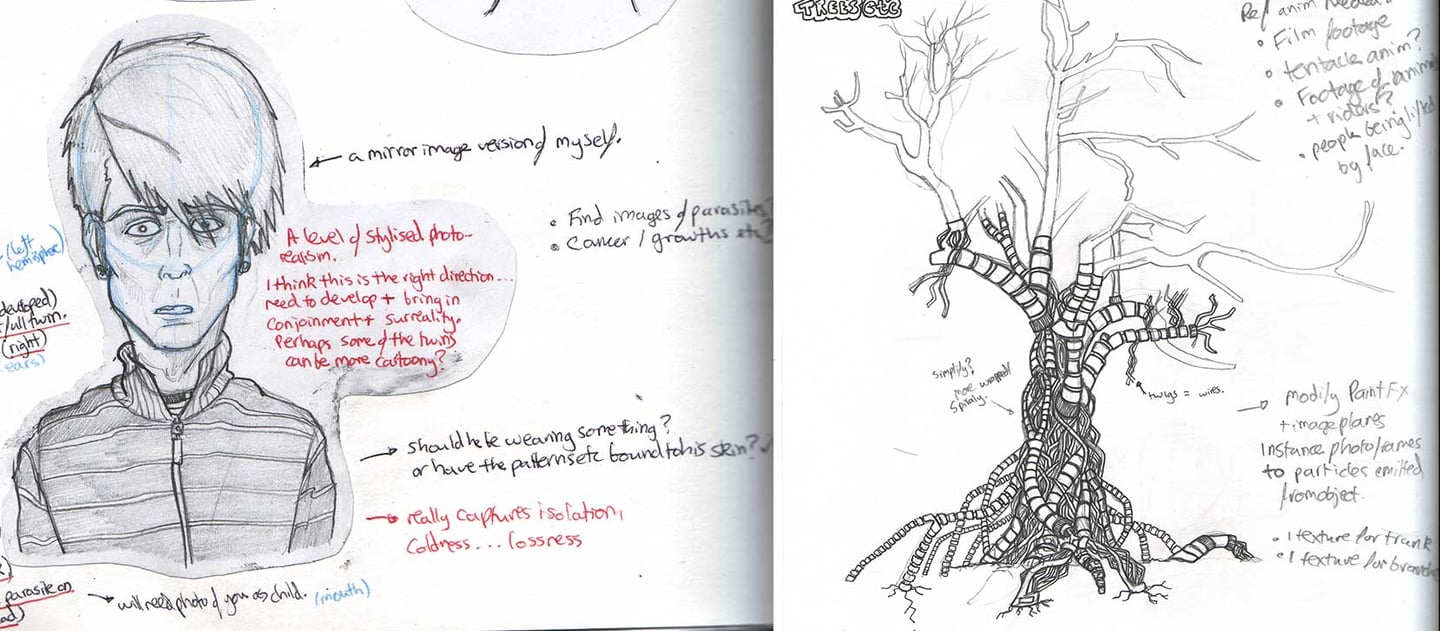 a mirror image version of myself.
• Find images of parasites
• Cancer / growths etc?
A level of stylised photo-
realism.
I think this is the right direction...
need to develop + bring in
conjoinment + surreality.
Perhaps some of the twins
can be more cartoony?
(left
hemisphere)
twin.
(right)
ears)
should he be wearing something?
or have the patterns etc bound to his skin?
really captures isolation,
coldness... lossness
parasite on
will need photo of you as child. (mouth)
TREES etc
Ref anim needed
• Film footage
• tentacle anim?
• Footage of animals
+ riders?
• people being lifted
by face.
simplify?
more wrapped/
spiraly.
twigs = wires.
modify Paint Fx
+ image planes
Instance photoframes
to particles emitted
from object.
• 1 texture for trunk
• 1 texture for branches